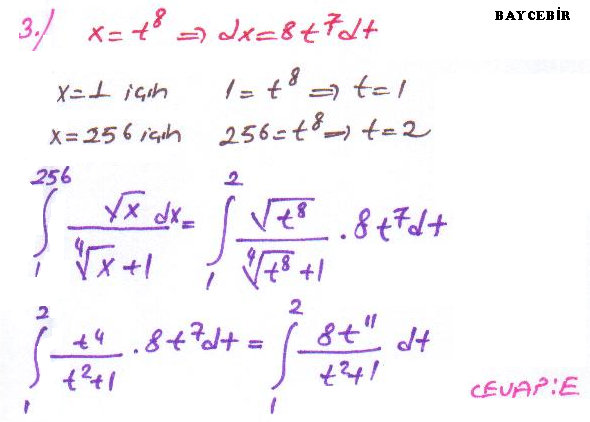 BAYCEBİR
3./ x=t⁸ ⇒ dx=8t⁷dt
x=1 için 1=t⁸ ⇒ t=1
x=256 için 256=t⁸ ⇒ t=2
∫₁²⁵⁶ √x dx / (⁴√x+1) = ∫₁² √t⁸ / (⁴√t⁸+1) .8t⁷dt
∫₁² t⁴/(t²+1) .8t⁷dt = ∫₁² 8t¹¹/(t²+1) dt
CEVAP:E